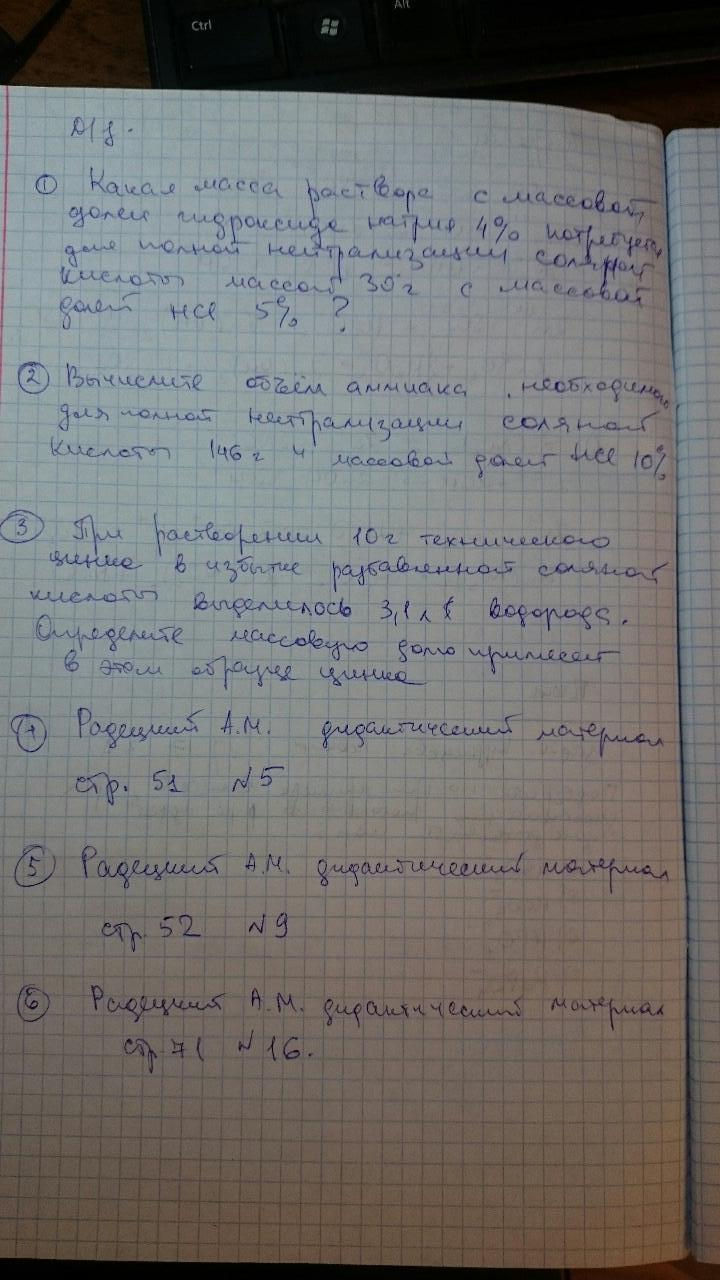 Ctrl
Alt
Д/з.
① Какая масса раствора с массовой
долей гидроксида натрия 4% потребуется
для полной нейтрализации соляной
кислоты массой 30 г с массовой
долей HCl 5% ?
② Вычислите объём аммиака, необходимого
для полной нейтрализации соляной
кислоты 146 г и массовой долей HCl 10%
③ При растворении 10 г технического
цинка в избытке разбавленной соляной
кислоты выделилось 3,1 л водорода.
Определите массовую долю примесей
в этом образце цинка
④ Радецкий А.М. дидактический материал
стр. 51 №5
⑤ Радецкий А.М. дидактический материал
стр. 52 №9
⑥ Радецкий А.М. дидактический материал
стр 71 №16.